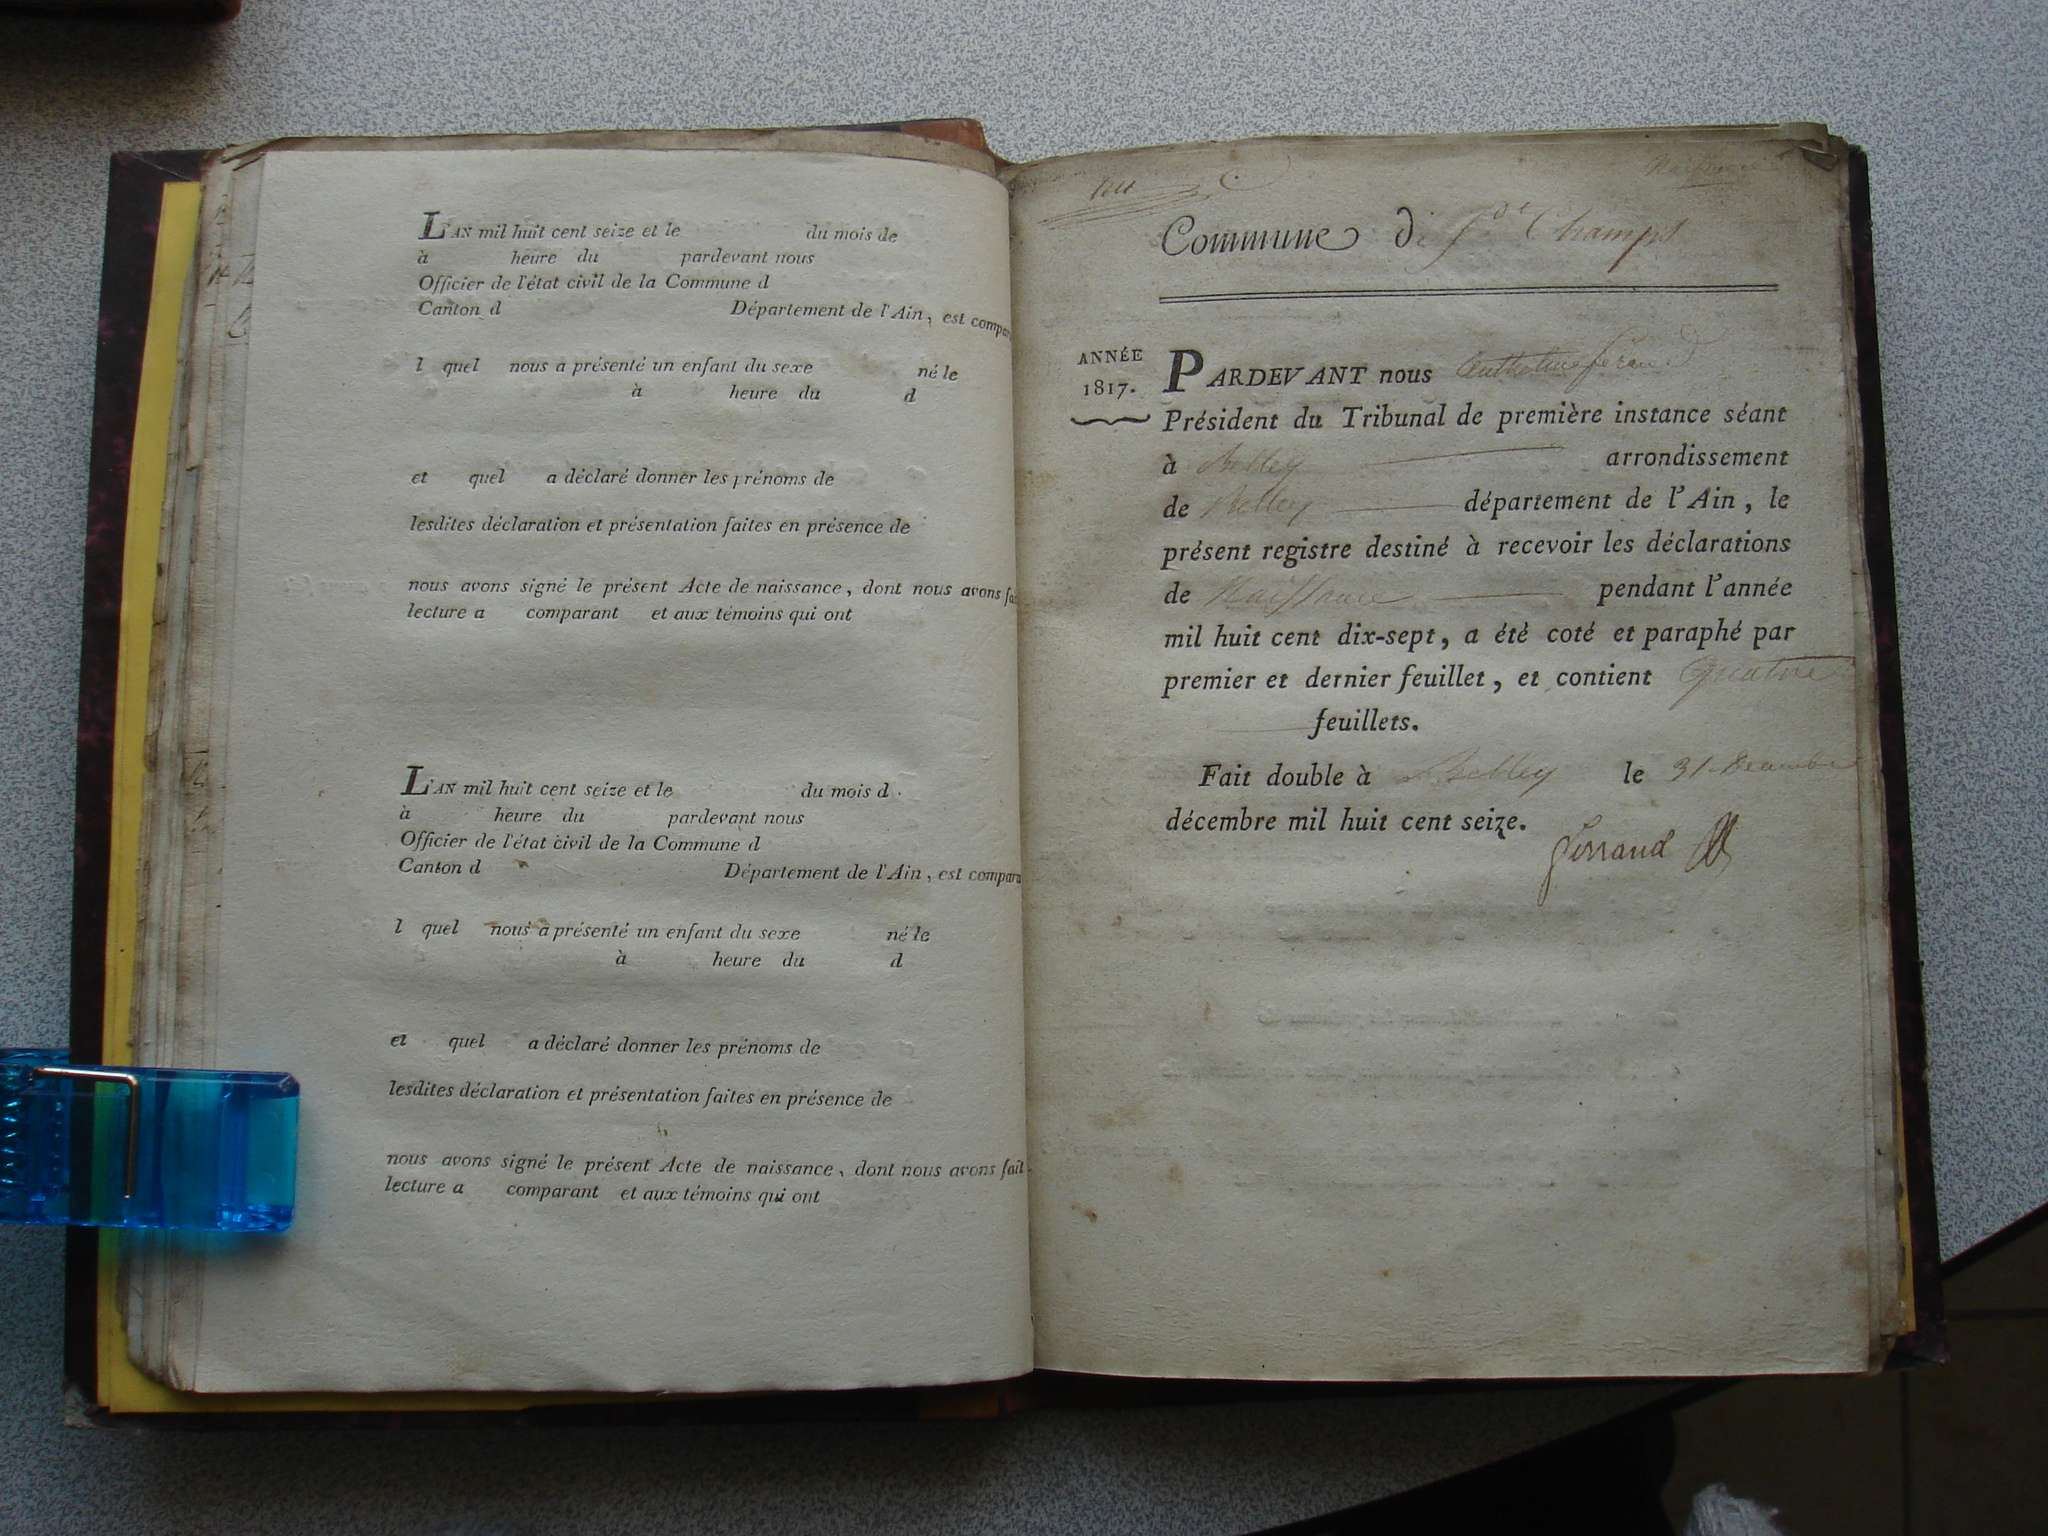 L'AN mil huit cent seize et le du mois de
à heure du pardevant nous
Officier de l'état civil de la Commune d
Canton d Département de l'Ain, est compar
l quel nous a présenté un enfant du sexe né le
à heure du d
et quel a déclaré donner les prénoms de
lesdites déclaration et présentation faites en présence de
nous avons signé le présent Acte de naissance, dont nous avons fai
lecture a comparant et aux témoins qui ont
L'AN mil huit cent seize et le du mois d
à heure du pardevant nous
Officier de l'état civil de la Commune d
Canton d Département de l'Ain, est compara
l quel nous a présenté un enfant du sexe né le
à heure du d
et quel a déclaré donner les prénoms de
lesdites déclaration et présentation faites en présence de
nous avons signé le présent Acte de naissance, dont nous avons fait
lecture a comparant et aux témoins qui ont
Commune de Champt
ANNÉE
1817.
PARDEVANT nous
Président du Tribunal de première instance séant
à Belley arrondissement
de Belley département de l'Ain, le
présent registre destiné à recevoir les déclarations
de Naissance pendant l'année
mil huit cent dix-sept, a été coté et paraphé par
premier et dernier feuillet, et contient quatre
feuillets.
Fait double à Belley le 31 Décembre
décembre mil huit cent seize.